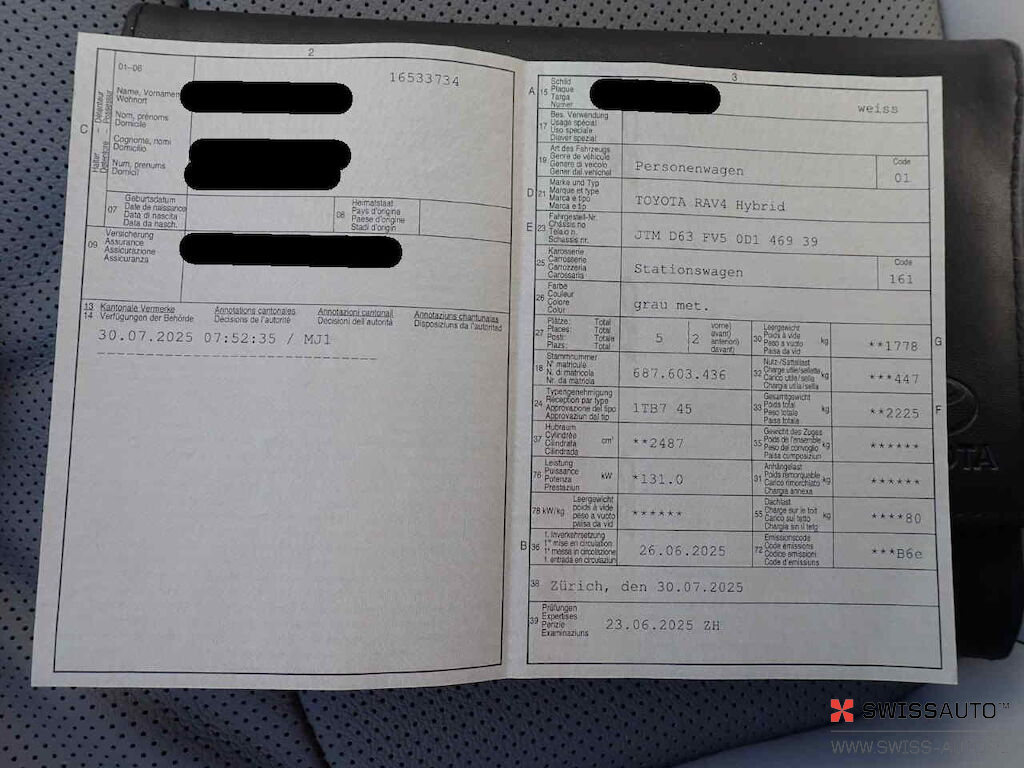 2
01–06
16533734
C
Halter – Détenteur
Detentore – Possessur
Name, Vornamen
Wohnort
Nom, prénoms
Domicile
Cognome, nomi
Domicilio
Num, prenums
Domicil
07
Geburtsdatum
Date de naissance
Data di nascita
Data da nasch.
08
Heimatstaat
Pays d'origine
Paese d'origine
Stadi d'origin
09
Versicherung
Assurance
Assicurazione
Assicuranza
13
14
Kantonale Vermerke
Verfügungen der Behörde
Annotations cantonales
Décisions de l'autorité
Annotazioni cantonali
Decisioni dell'autorità
Annotaziuns chantunalas
Disposiziuns da l'autoritad
30.07.2025 07:52:35 / MJ1
3
A
15
Schild
Plaque
Targa
Numer
weiss
17
Bes. Verwendung
Usage spécial
Uso speciale
Diever spezial
19
Art des Fahrzeugs
Genre de véhicule
Genere di veicolo
Gener dal vehichel
Personenwagen
Code
01
D
21
Marke und Typ
Marque et type
Marca e tipo
Marca e tip
TOYOTA RAV4 Hybrid
E
23
Fahrgestell-Nr.
Châssis no
Telaio n.
Schassis nr.
JTM D63 FV5 0D1 469 39
25
Karosserie
Carrosserie
Carrozzeria
Carossaria
Stationswagen
Code
161
26
Farbe
Couleur
Colore
Colur
grau met.
27
Plätze: Total
Places: Total
Posti: Totale
Plazs: Total
5
2
vorne)
avant)
anteriori)
davant)
30
Leergewicht
Poids à vide
Peso a vuoto
Paisa da vid
kg
**1778
G
18
Stammnummer
N° matricule
N. di matricola
Nr. da matricla
687.603.436
32
Nutz-/Sattellast
Charge utile/sellette
Carico utile/sella
Chargia utila/sella
kg
***447
24
Typengenehmigung
Réception par type
Approvazione del tipo
Approvaziun dal tip
1TB7 45
33
Gesamtgewicht
Poids total
Peso totale
Paisa totala
kg
**2225
F
37
Hubraum
Cylindrée
Cilindrata
Cilindrada
cm³
**2487
35
Gewicht des Zuges
Poids de l'ensemble
Peso del convoglio
Paisa cumposiziun
kg
******
76
Leistung
Puissance
Potenza
Prestaziun
kW
*131.0
31
Anhängelast
Poids remorquable
Carico rimorchiato
Chargia annexa
kg
******
78 kW/kg
Leergewicht
poids à vide
peso a vuoto
paisa da vid
******
55
Dachlast
Charge sur le toit
Carico sul tetto
Chargia sin il tetg
kg
****80
B
36
1. Inverkehrsetzung
1re mise en circulation
1a messa in circolazione
1. entrada en circulaziun
26.06.2025
72
Emissionscode
Code émissions
Codice emissioni
Code d'emissiuns
***B6e
38
Zürich, den 30.07.2025
39
Prüfungen
Expertises
Perizie
Examinaziuns
23.06.2025 ZH
SWISSAUTO™